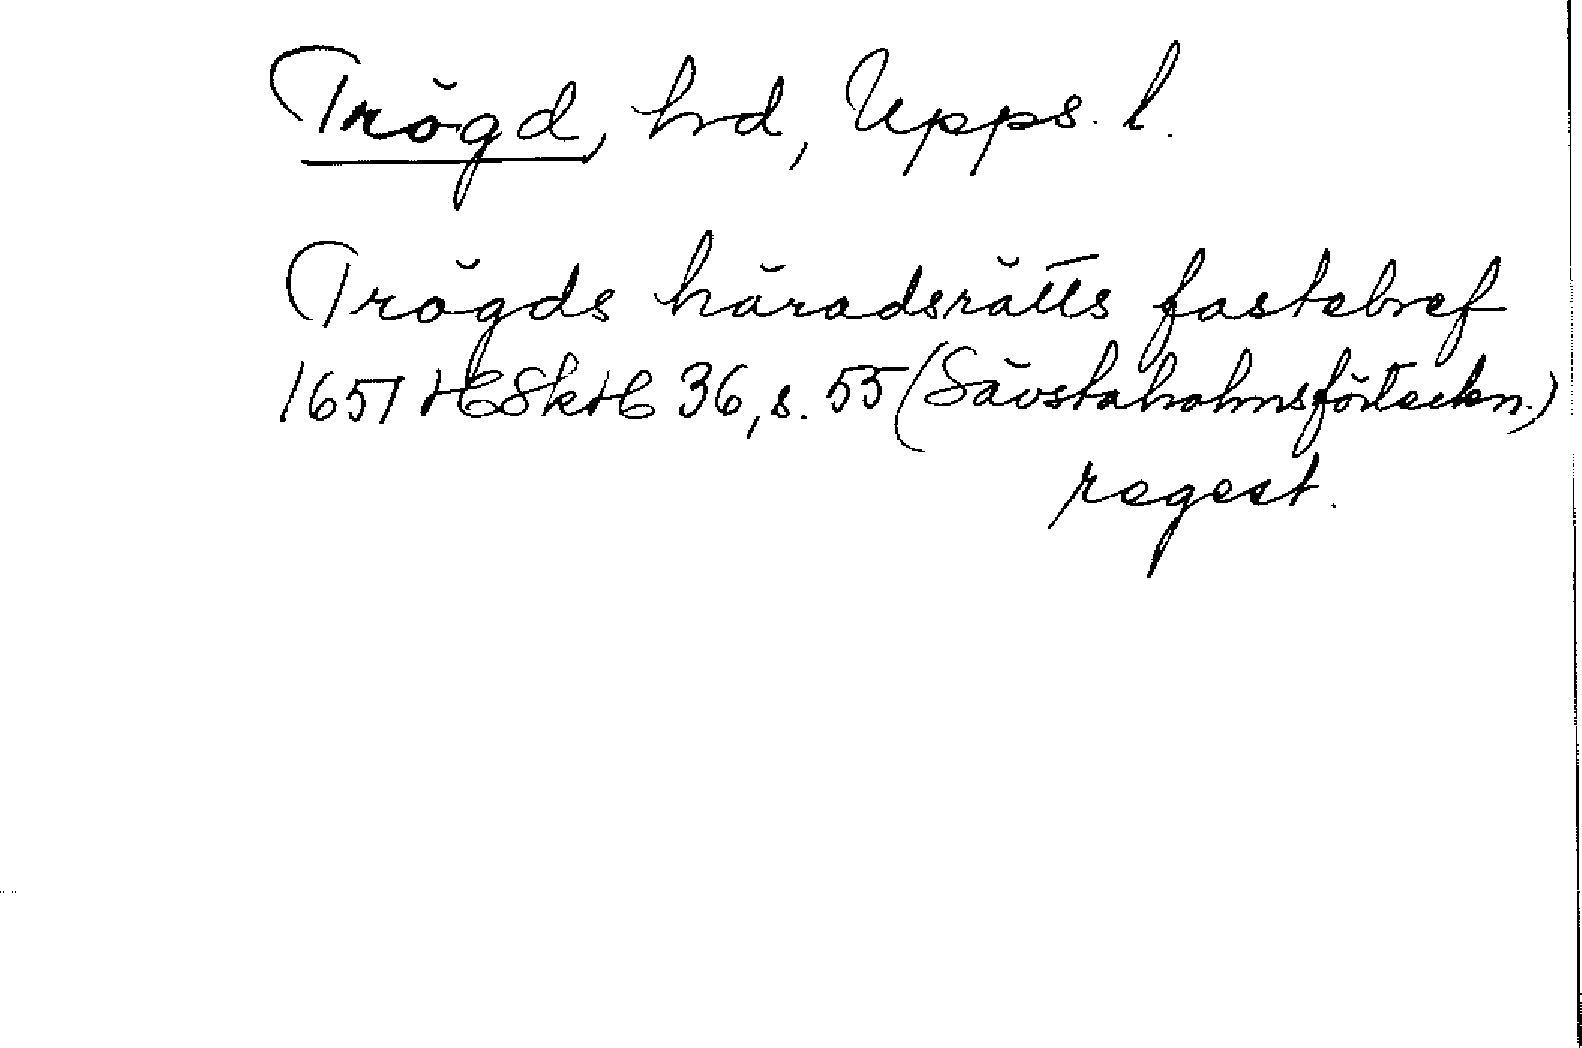 Trögd, hrd, Upps. l.
Trögds häradsrätts fastebref
1651 HSkH 36, s. 55 (Sävstaholmsförteckn.)
regest.